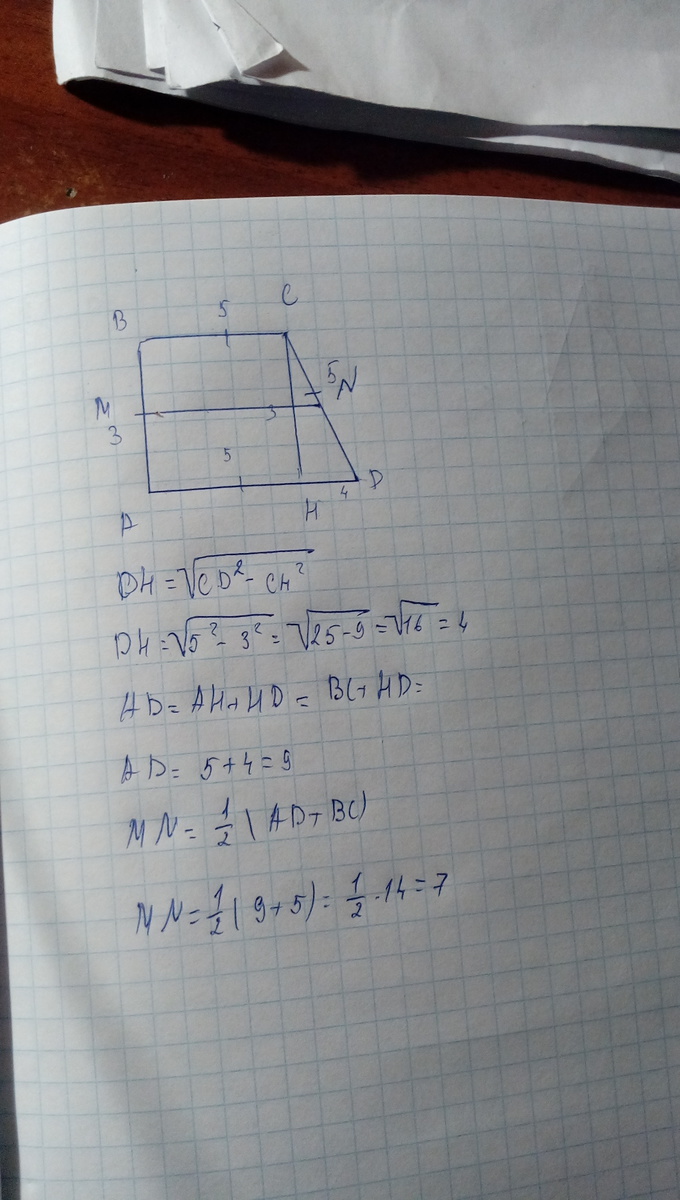 B 5 C
5 N
M
3 3
5
D
4
A H
DH = √CD² - CH²
DH = √5² - 3² = √25-9 = √16 = 4
AD = AH + HD = BC + HD =
AD = 5 + 4 = 9
MN = 1/2 ( AD + BC)
MN = 1/2 ( 9 + 5) = 1/2 · 14 = 7